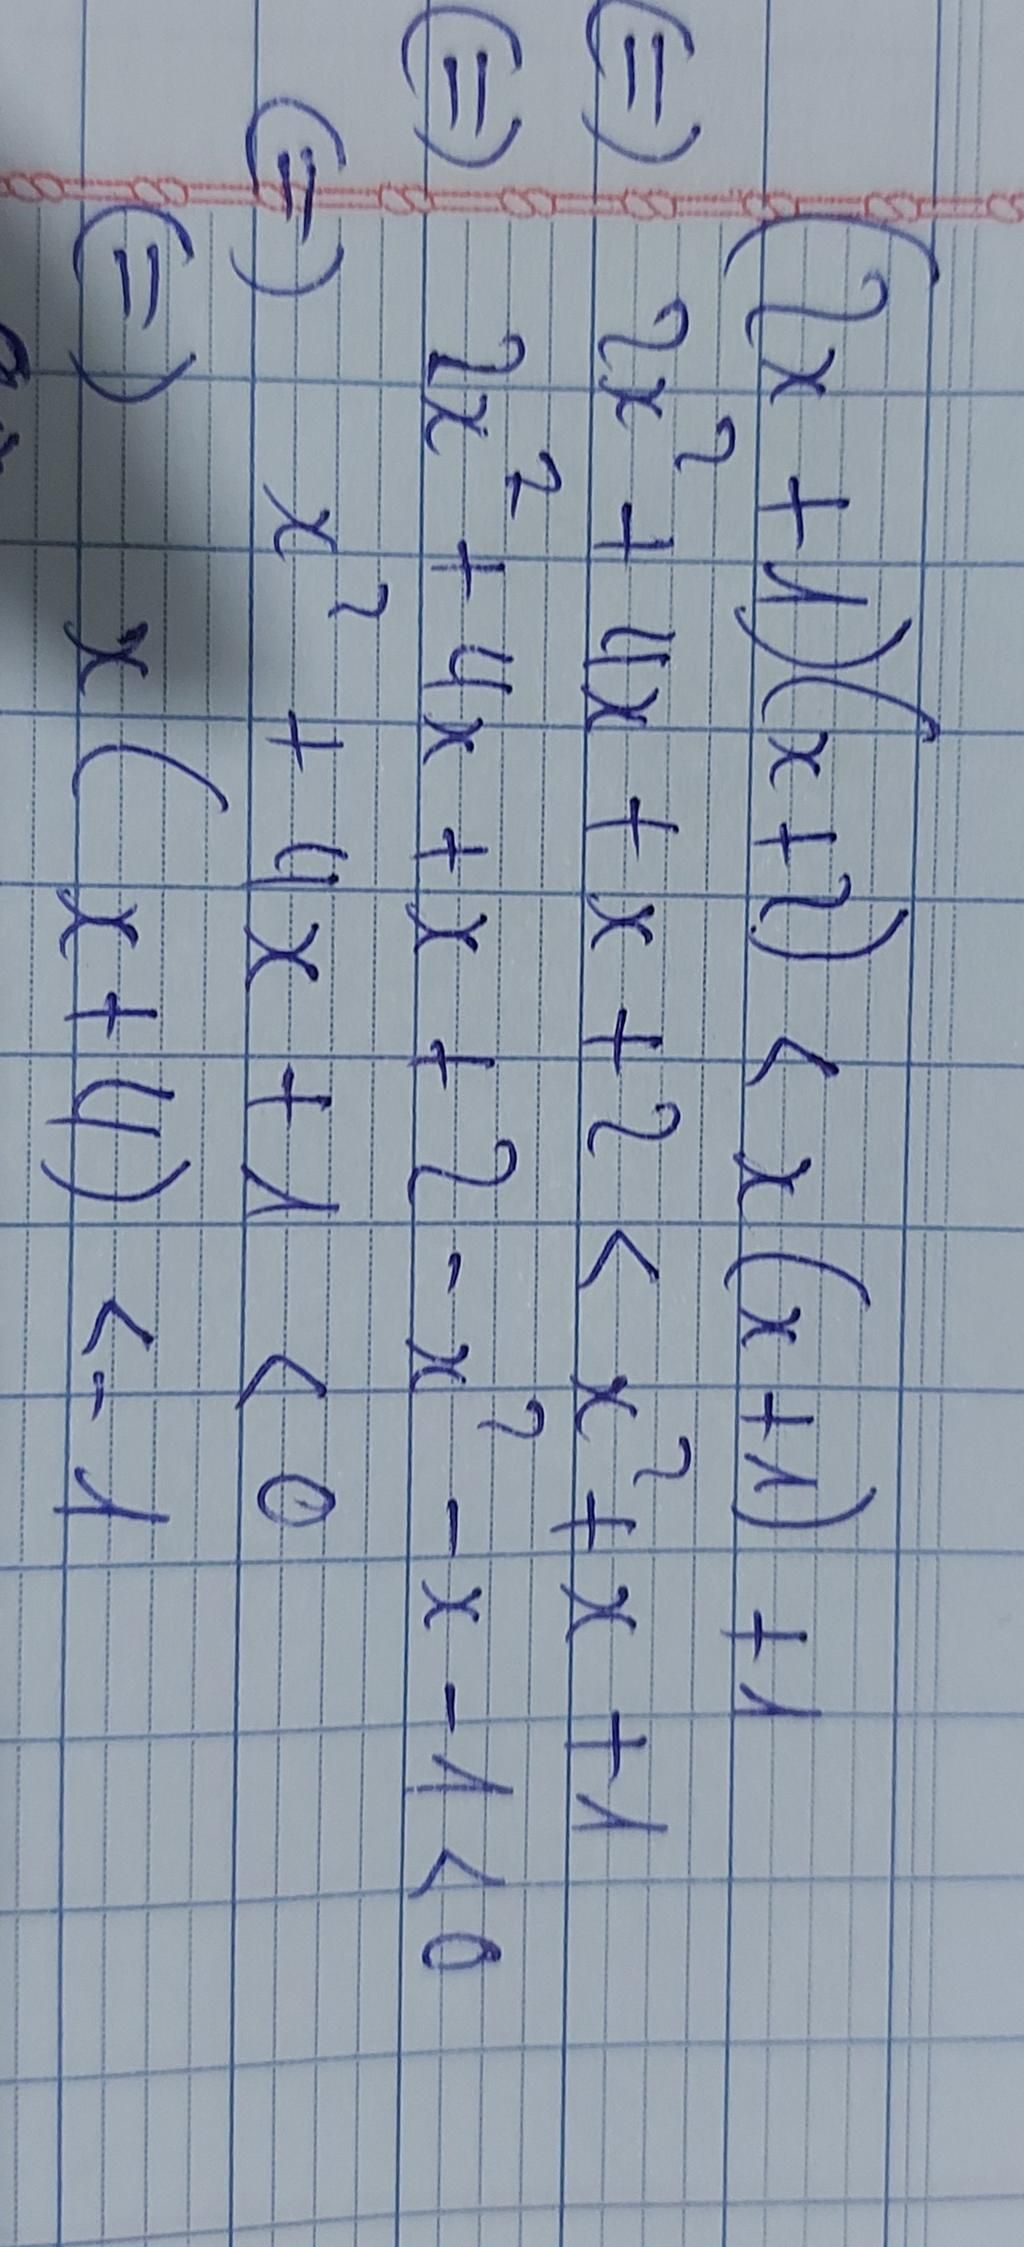 (2x + 1)(x + 2) < x(x + 1) + 1
(=) 2x² + 4x + x + 2 < x² + x + 1
(=) 2x² + 4x + x + 2 - x² - x - 1 < 0
(=) x² + 4x + 1 < 0
(=) x(x + 4) < -1